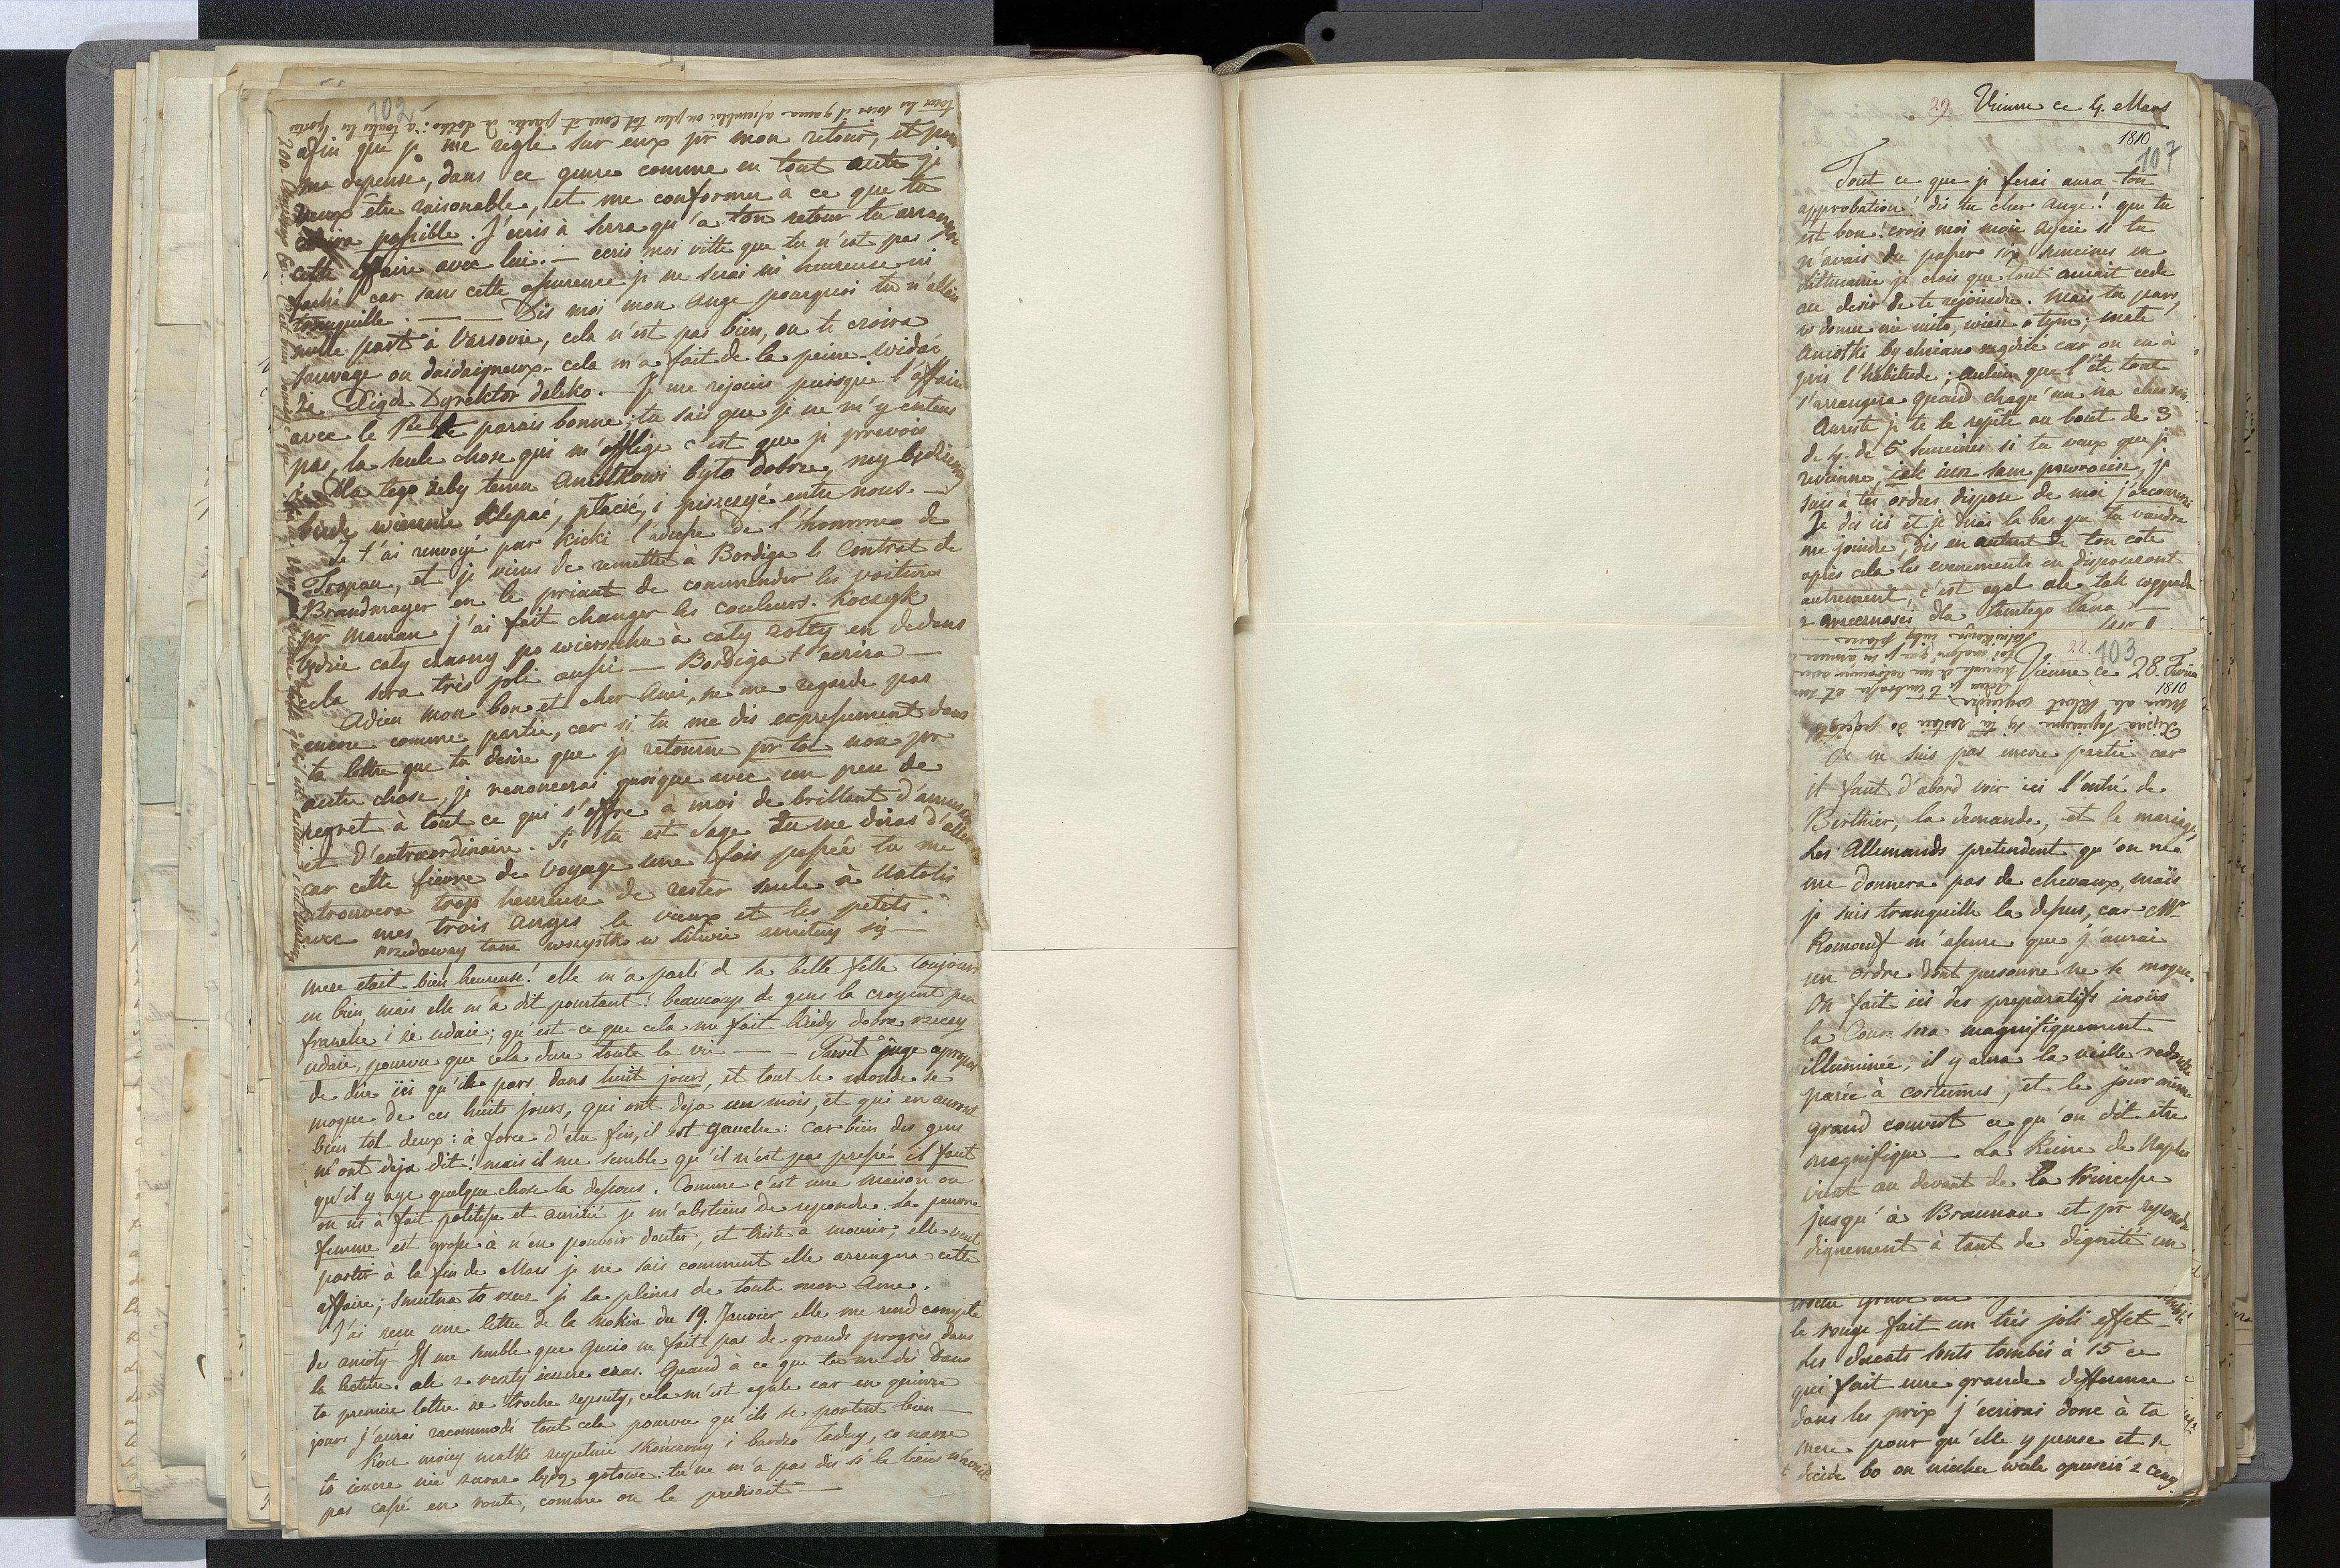 102
afin que je me regle sur eux pr mon retour, et pour
ma depense, dans ce genre comme en tout autre je
veux être raisonable, et me conformer à ce que tu
possible. J'ecris à Serra qu'a ton retour tu arrangera
cette affaire avec lui. — ecris moi vitte que tu n'est pas
faché car sans cette assurence je ne serai ni heureuse ni
tranquille. — Dis moi mon Ange pourquoi tu n'allais
nulle part à Varsovie, cela n'est pas bien, on te croira
sauvage ou daidaigneux. cela m'a fait de la peine. widać
że Xiądz Dyrektor daleko. — Je me rejouis puisque l'affaire
avec le parais bonne; tu sais que je ne m'y entens
pas, la seule chose qui m'afflige c'est que je prevois
że dla tego żeby temu Aniołkowi było dobrze, my będziemy
biede wiecznie klepać, płacić, i piszczyć entre nous. —
Je t'ai renvoyé par Kicki l'adresse de l'homme de
Tropau, et je viens de remettre à Bordiga le Contrat de
Brandmayer en le priant de commender les voitures
pr Maman j'ai fait changer les couleurs. Koczyk
będzie cały czarny po wierzchu à cały zołty en dedans
cela sera très joli aussi — Bordiga t'ecrira —
Adieu mon bon et cher Ami, ne me regarde pas
encore comme partie, car si tu me dis expressement dans
ta lettre que tu desire que je retourne pr toi non pr
autre chose, je renoncerai quoique avec un peu de
regret à tout ce qui s'offre a moi de brillant d'amusant
et d'extraordinaire. Si tu est sage tu me diras d'aller
car cette fievre de voyage une fois passée tu me
trouvera trop heureuse de rester seule à Natolin
avec mes trois anges le vieux et les petits.
przedaway tam wszystko w Litwie zmiłuy się —
mere était bien heureuse! elle m'a parlé de sa belle fille toujours
en bien mais elle m'a dit pourtant! beaucoup de gens la croyent peu
franche i że udaie; qu'est-ce que cela me fait kiedy dobre rzeczy
udaie, pourvu que cela dure toute la vie — — juge apropos
de dire ici qu'ils pars dans huit jours, et tout le monde se
moque de ces huits jours, qui ont deja un mois, et qui en auront
bien tot deux: à force d'etre fin, il est gauche: car bien des gens
m'ont deja dit! mais il me semble qu'il n'est pas pressé il faut
qu'il y aye quelque chose la dessous. Comme c'est une maison ou
on m'a fait politesse et amitié je m'abstiens de repondre. La pauvre
femme est grosse à n'en pouvoir douter, et triste a mourir, elle veut
partir à la fin de Mars je ne sais comment elle arrengera cette
affaire; smutna to rzecz je la pleins de toute mon Ame.
J'ai recu une lettre de la Mokia du 19. Janvier elle me rend compte
des anioły — Il me semble que Gucio ne fait pas de grands progrès dans
la lecture. ale z reszty ieszcze czas. Quand à ce que tu me dis Dans
ta premiere lettre że troche zepsuty, cela m'est egale car en quinze
jours j'aurai racommodé tout cela pourvu qu'ils se portent bien —
Kocz moiey matki zupełnie skończony i bardzo ładny, co nasze
to ieszcze nie zaraz będą gotowe: tu ne m'a pas dis si le tiens n'avoit
pas cassé en route, comme on le predisait —
29 Vienne ce 4. Mars
1810
107
Tout ce que je ferai aura ton
approbation! dis tu cher Ange! que tu
est bon! crois moi mon Ami si tu
n'avais du passer six semeines en
Litthuanie je crois que tout aurait cede
au desir de te rejoindre. Mais tu pars,
w domu nie miło, wiesz o tym; małe
Aniołki by chciano rządzić car on en à
pris l'habitude; aulieu que l'été tout
s'arrangera quand chaqu'un ira chez soi.
Aureste je te le repète au bout de 3
de 4. de 5 semeines si tu veux que je
revienne, iak iuż sam powrocisz, je
suis à tes ordres dispose de moi j'accourrerai
Je dis ici et je dirai la bas que tu viendra
me joindre, Dis en autant de ton coté
après cela les evenements en disposeront
autrement, c'est egal ale tak wypada
z grzecznosci dla tamtego Pana —
28. 103
Vienne ce 28. Fevrier
1810
Je ne suis pas encore partie car
il faut d'abord voir ici l'entré de
Berthier, la demande, et le mariage,
Les Allemands pretendent qu'on ne
me donnera pas de chevaux, mais
je suis tranquille la dessus, car Mr
Romœuf m'assure que j'aurai
un ordre dont personne ne se moque.
On fait ici des preparatifs inoüis
la Cour sera magnifiquement
illuminée, il y aura la veille redoute
parée à costumes, et le jour même
grand couvert ce qu'on dit être
magnifique — La Reine de Naples
vient au devant de la Princesse
jusqu'à Braunau et pr reponde
dignement à tant de dignité un
le rouge fait un très joli effet —
Les ducats sonts tombés à 15 ce
qui fait une grande difference
dans les prix j'ecrirai donc à ta
mere pour qu'elle y pense et se
decide bo on niechce wcale opuscić z ceny.